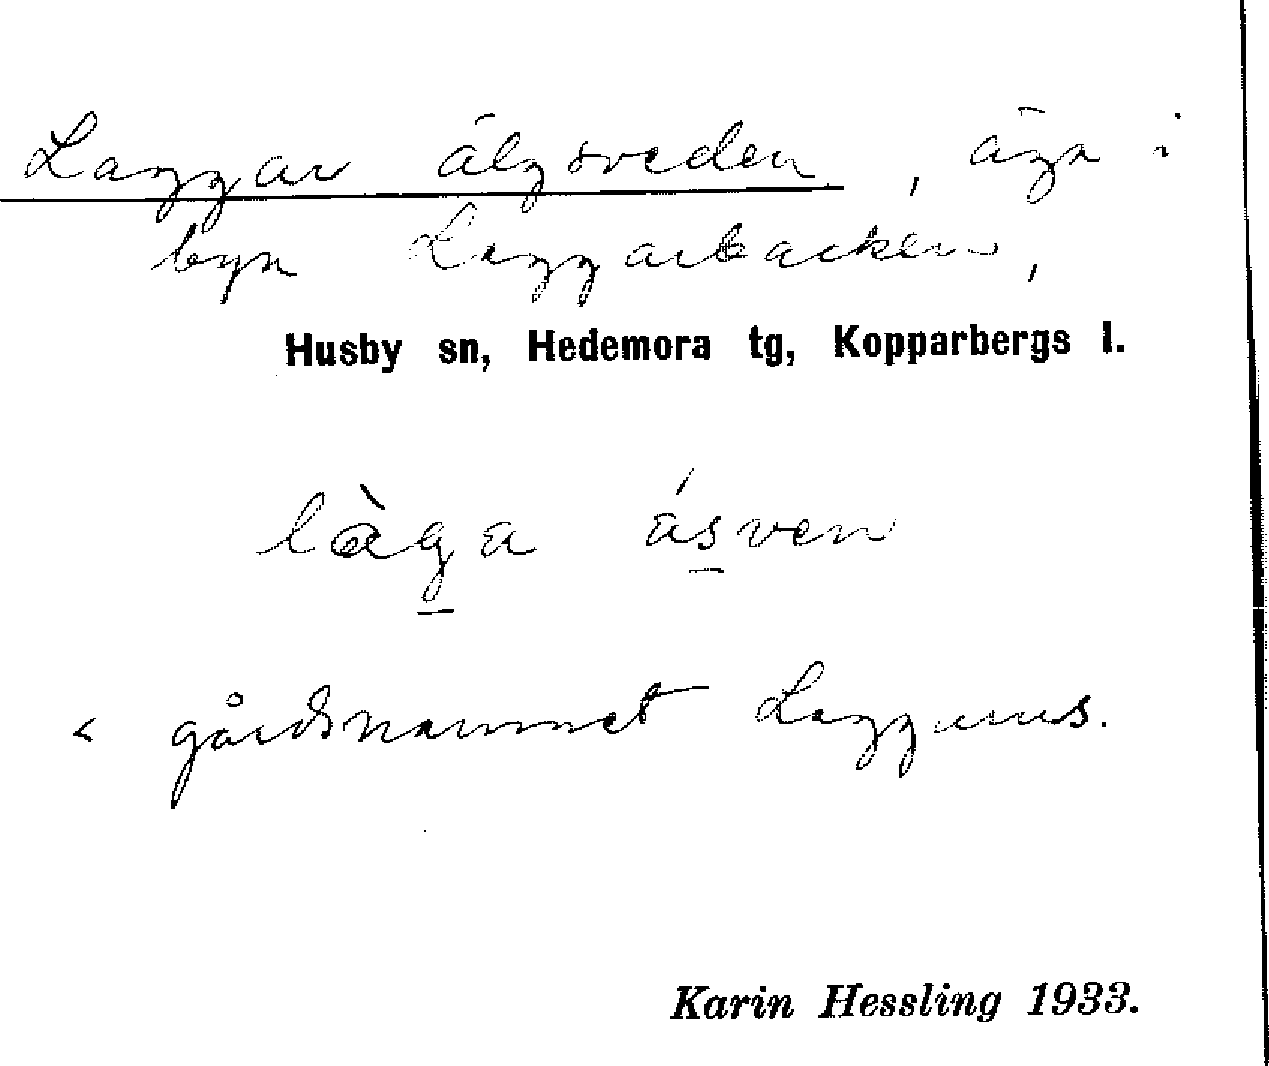 Laggar älgsveden, äga i
byn Laggarbacken,
Husby sn, Hedemora tg, Kopparbergs l.
làga ásven
< gårdsnamnet
Karin Hessling 1933.